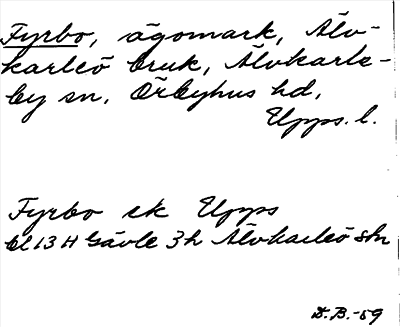 Fyrbo, ägomark, Älv-
karleö bruk, Älvkarle-
by sn, Örbyhus hd,
Upps. l.
Fyrbo ek Upps
bl 13 H Gävle 3h Älvkarleö Skn
D.B.-59